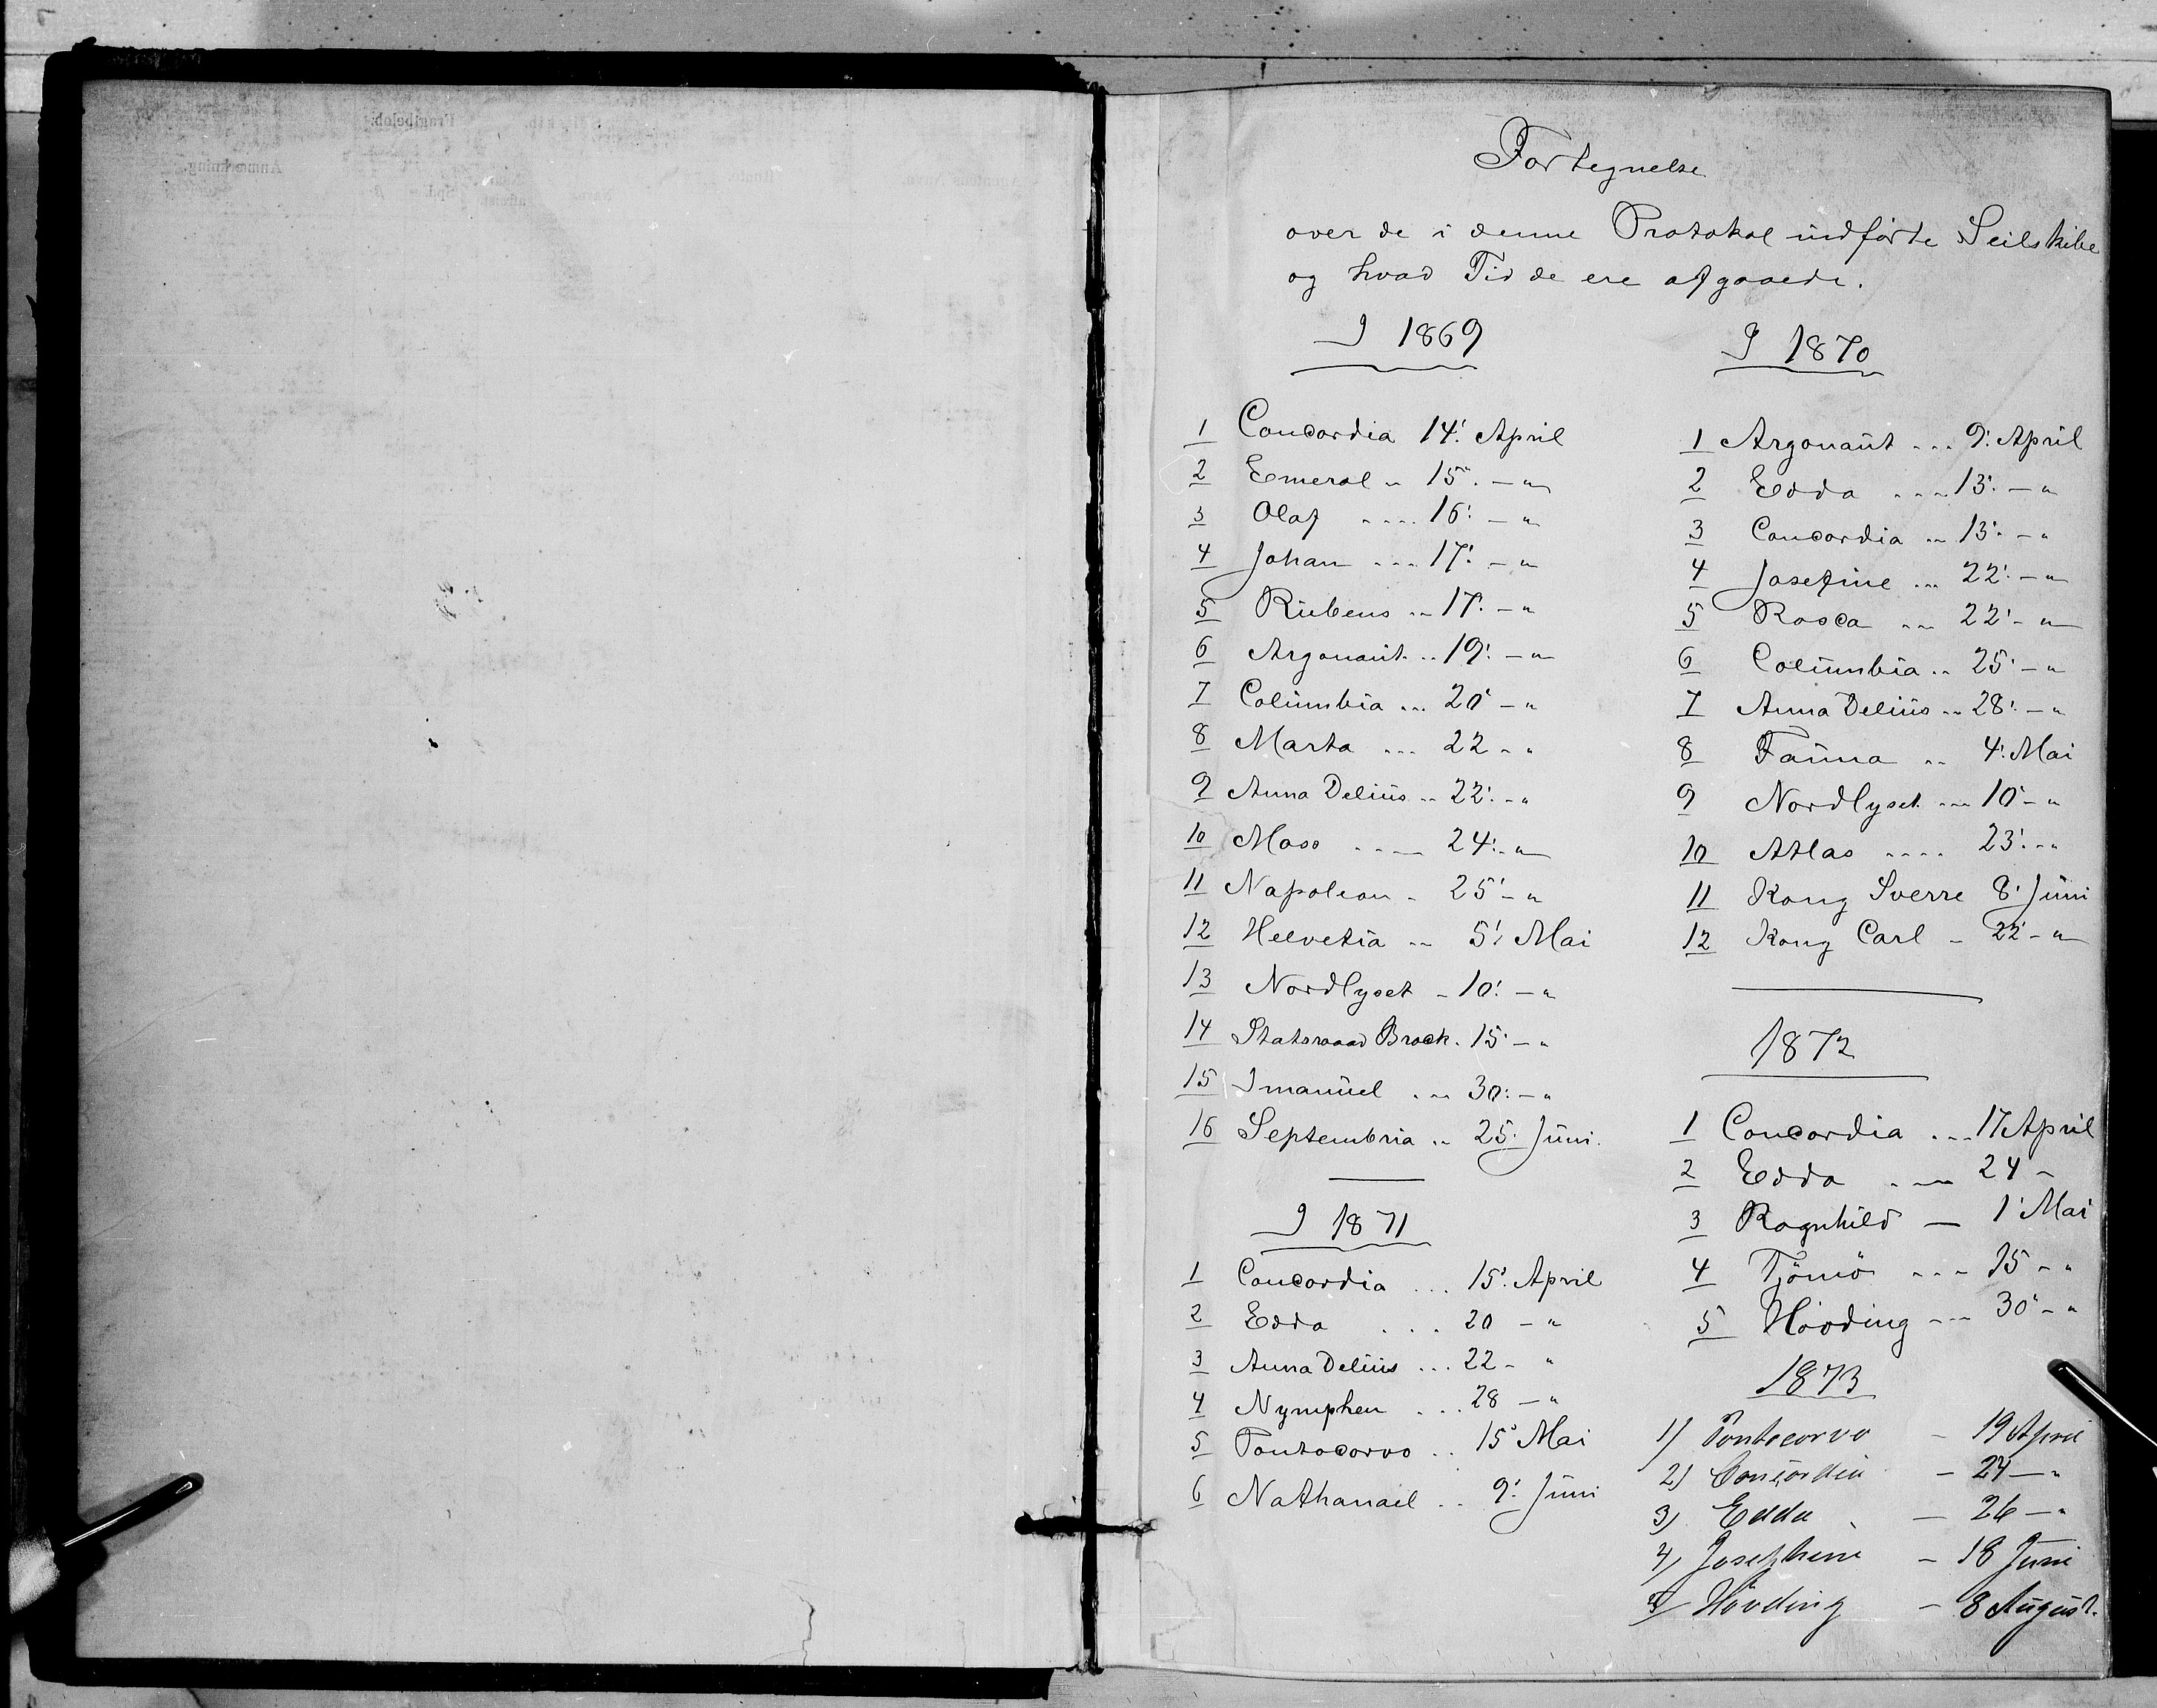 Fortegnelse
over de i denne Protokol indførte Seilskibe
og hvad Tid de ere afgaaede.
I 1869
1 Concordia 14' April
2 Emeral .. 15' — "
3 Olaf .... 16' — "
4 Johan ... 17' — "
5 Rubens .. 17' — "
6 Argonaut .. 19' — "
7 Columbia ... 20' — "
8 Marta ... 22 - "
9 Anna Delius .. 22' - "
10 Moss .... 24' - "
11 Napoleon . 25' - "
12 Helvetia .. 5' Mai
13 Nordlyset . 10' — "
14 Statsraad Brock . 15' — "
15 Imanuel ... 30' — "
16 Septembria .. 25' Juni.
I 1871
1 Concordia ... 15' April
2 Edda ... 20 — "
3 Anna Delius ... 22 - "
4 Nymphen ... 28 — "
5 Pontocorvo .. 15' Mai
6 Nathanael .. 9' Juni
I 1870
1 Argonaut ... 9' April
2 Edda .... 13' — "
3 Concordia .. 13' — "
4 Josefine ... 22' — "
5 Rosea ... 22' - "
6 Columbia .. 25' — "
7 Anna Delius .. 28' — "
8 Fauna .. 4' Mai
9 Nordlyset ... 10' - "
10 Atlas .... 23' - "
11 Kong Sverre 8' Juni
12 Kong Carl - 22' - "
1872
1 Concordia ... 17 April
2 Edda ... 24 -
3 Ragnhild — 1' Mai
4 Tjömö ... 15 - "
5 Hövding ... 30' - "
1873
1) Pontecorvo - 19 April
2) Concordia - 24 — "
3) Edda — 26 — "
4) Josephine - 18 Juni
5) Hövding - 8 August.